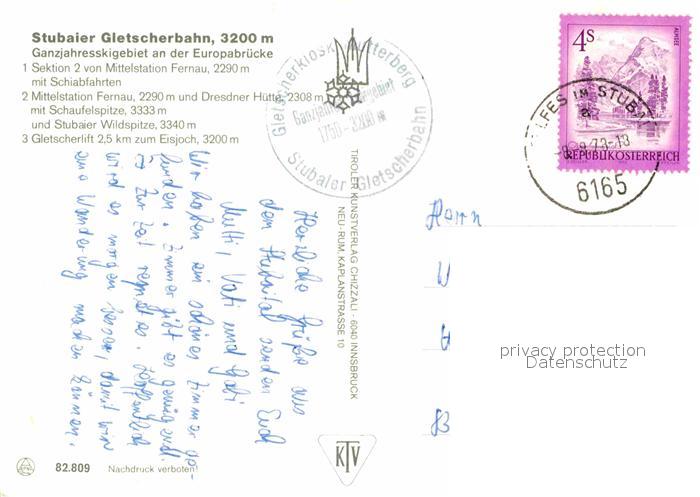 Stubaier Gletscherbahn, 3200 m
Ganzjahresskigebiet an der Europabrücke
1 Sektion 2 von Mittelstation Fernau, 2290 m
mit Schiabfahrten
2 Mittelstation Fernau, 2290 m und Dresdner Hütte, 2308 m
mit Schaufelspitze, 3333 m
und Stubaier Wildspitze, 3340 m
3 Gletscherlift 2,5 km zum Eisjoch, 3200 m
Gletscherkiosk Mutterberg
Ganzjahresskigebiet
1750 - 3200 m
Stubaier Gletscherbahn
4 S
ALMSEE
REPUBLIK ÖSTERREICH
TELFES IM STUBAI
a
78-18
6165
Herzliche Grüße aus
dem Stubaital senden Euch
Mutti, Vati und Gabi
Wir haben ein schönes Zimmer ge-
funden. Zimmer gibt es genügend.
Zur Zeit regnet es. Hoffentlich
wird es morgen besser, damit wir
eine Wanderung machen können.
TIROLER KUNSTVERLAG CHIZZALI - 6040 INNSBRUCK
NEU-RUM, KAPLANSTRASSE 10
Herrn
privacy protection
Datenschutz
KTV
82.809 Nachdruck verboten!